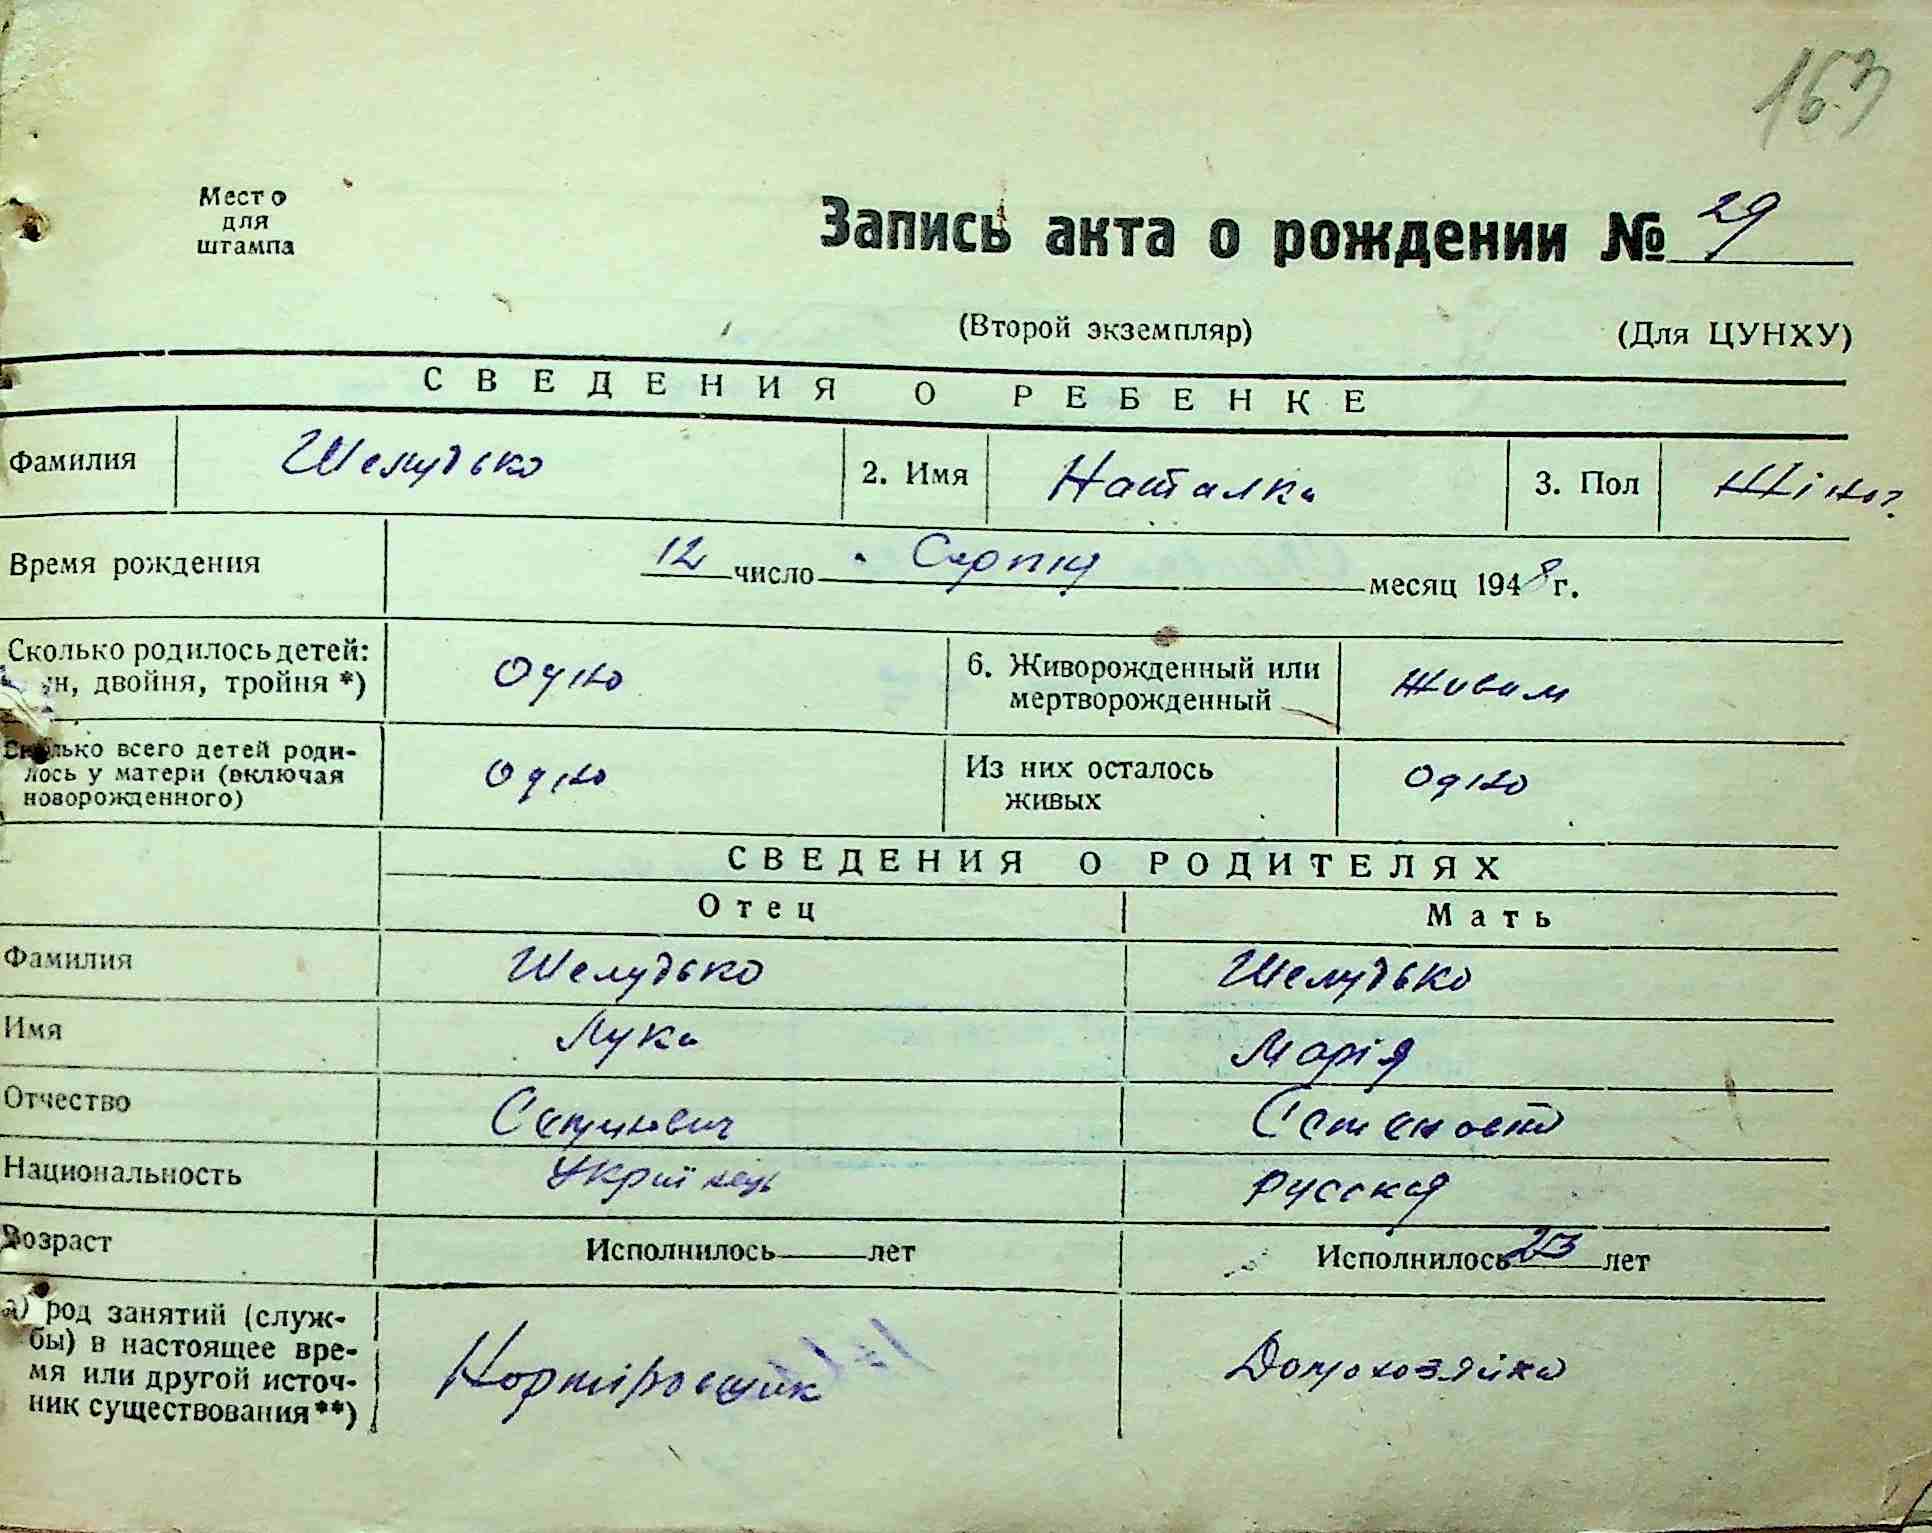 163
Место
для
штампа
Запись акта о рождении № 29
(Второй экземпляр)
(Для ЦУНХУ)
СВЕДЕНИЯ О РЕБЕНКЕ
Фамилия Шелудько 2. Имя Наталка 3. Пол Жіноч.
Время рождения 12 число Серпня месяц 1948 г.
Сколько родилось детей:
н, двойня, тройня *) Одно
6. Живорожденный или
мертворожденный Живим
Сколько всего детей роди-
лось у матери (включая
новорожденного) Одно
Из них осталось
живых Одно
СВЕДЕНИЯ О РОДИТЕЛЯХ
Отец Мать
Фамилия Шелудько Шелудько
Имя Лука Марія
Отчество
Национальность Українець Русская
Возраст Исполнилось лет Исполнилось 23 лет
а) род занятий (служ-
бы) в настоящее вре-
мя или другой источ-
ник существования **)
Нормировщик Домохозяйка